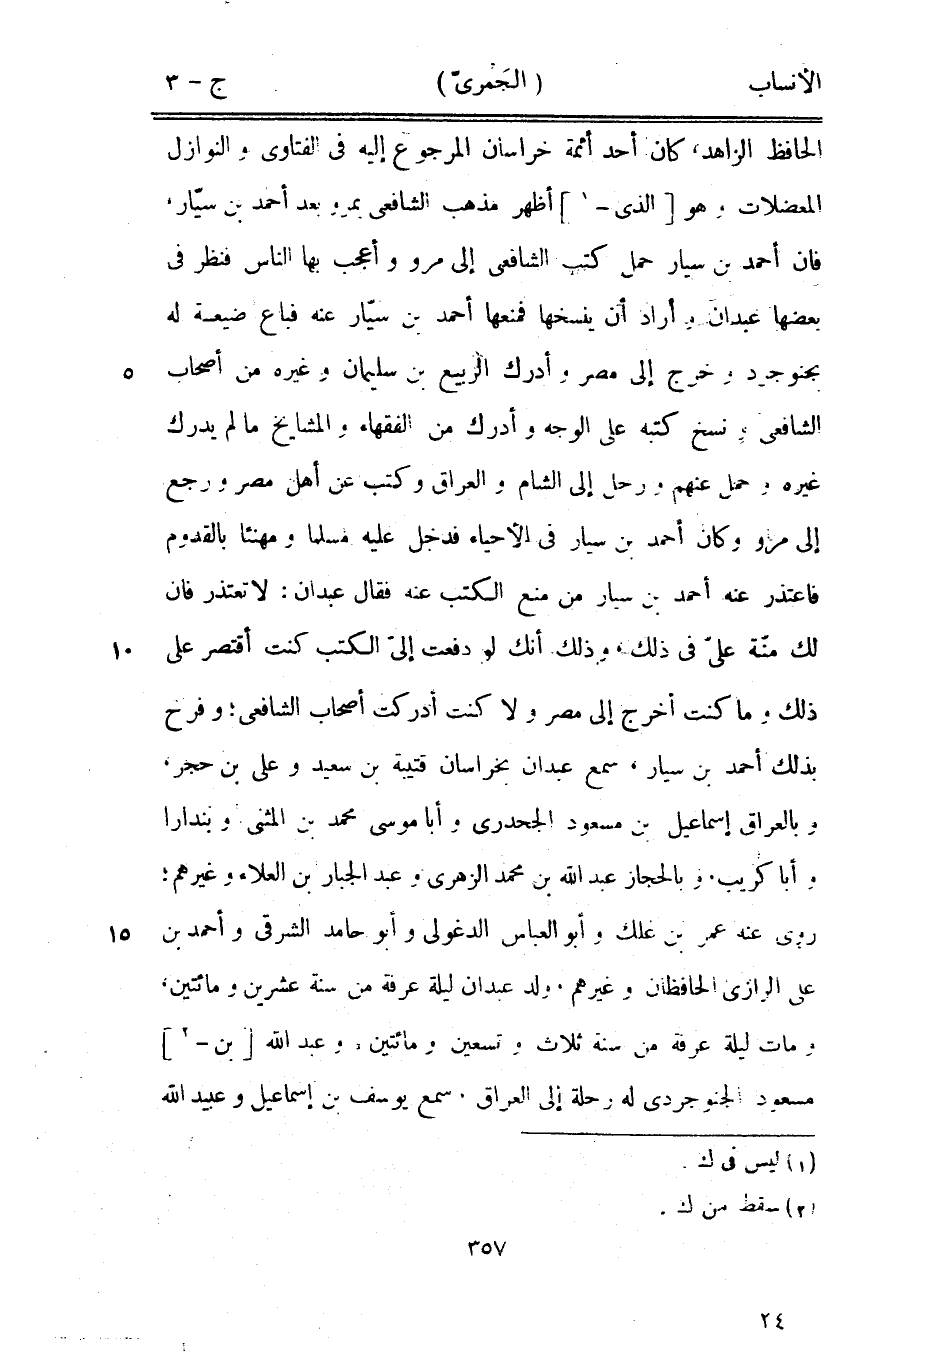 الأنساب ( الجَمْرىّ ) ج - ٣
الحافظ الزاهد، كان أحد أئمة خراسان المرجوع إليه فى الفتاوى و النوازل
المعضلات و هو [ الذى - ١ ] أظهر مذهب الشافعى بمرو بعد أحمد بن سيّار،
فان أحمد بن سيار حمل كتب الشافعى إلى مرو و أعجب بها الناس فنظر فى
بعضها عبدان و أراد أن ينسخها فمنعها أحمد بن سيّار عنه فباع ضيعة له
بجنوجرد و خرج إلى مصر و أدرك الربيع بن سليمان و غيره من أصحاب ٥
الشافعى و نسخ كتبه على الوجه و أدرك من الفقهاء و المشايخ ما لم يدرك
غيره و حمل عنهم و رحل إلى الشام و العراق و كتب عن أهل مصر و رجع
إلى مرو و كان أحمد بن سيار فى الأحياء فدخل عليه مسلما و مهنئا بالقدوم
فاعتذر عنه أحمد بن سيار من منع الكتب عنه فقال عبدان : لا تعتذر فان
لك منّة علىّ فى ذلك، و ذلك أنك لو دفعت إلىّ الكتب كنت أقتصر على ١٠
ذلك و ما كنت أخرج إلى مصر و لا كنت أدركت أصحاب الشافعى؛ و فرح
بذلك أحمد بن سيار ، سمع عبدان بخراسان قتيبة بن سعيد و على بن حجر،
و بالعراق إسماعيل بن مسعود الجحدرى و أبا موسى محمد بن المثنى و بندارا
و أبا كريب. و بالحجاز عبد الله بن محمد الزهرى و عبد الجبار بن العلاء و غيرهم؛
روى عنه عمر بن علك و أبو العباس الدغولى و أبو حامد الشرقى و أحمد بن ١٥
على الرازى الحافظان و غيرهم . ولد عبدان ليلة عرفة من سنة عشرين و مائتين،
و مات ليلة عرفة من سنة ثلاث و تسعين و مائتين . و عبد الله [ بن - ٢ ]
مسعود الجنوجردى له رحلة إلى العراق . سمع يوسف بن إسماعيل و عبيد الله
(١) ليس فى ك .
(٢) سقط من ك .
٣٥٧
٢٤